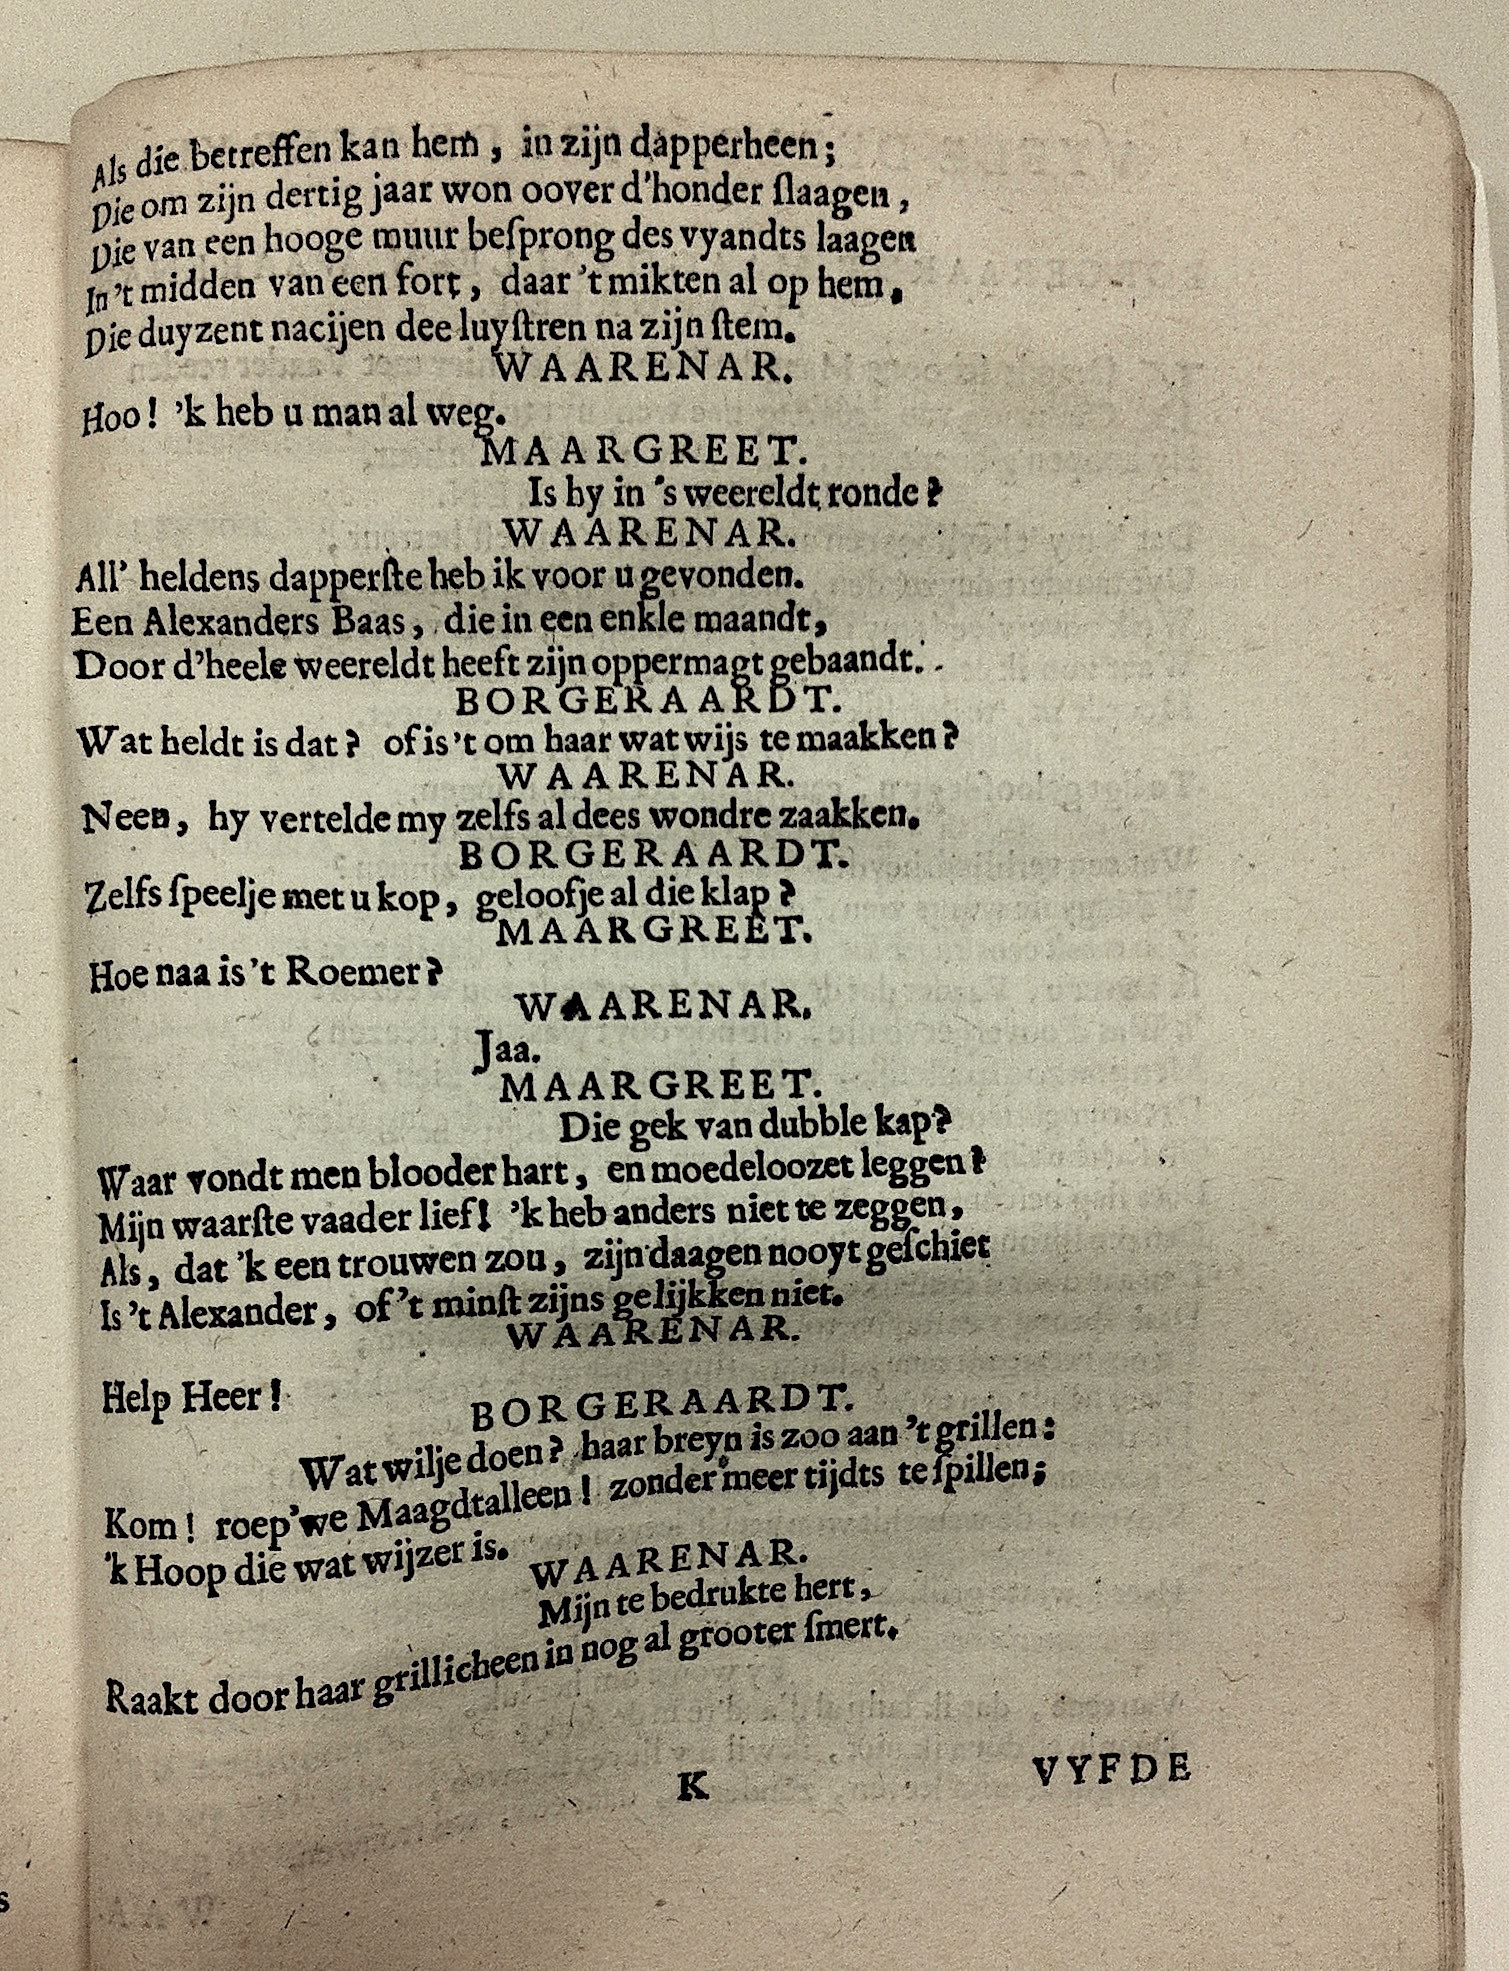 Als die betreffen kan hem, in zijn dapperheen;
Die om zijn dertig jaar won oover d'honder ſlaagen,
Die van een hooge muur beſprong des vyandts laagen
In 't midden van een fort, daar 't mikten al op hem,
Die duyzent nacijen dee luyſtren na zijn ſtem.
WAARENAR.
Hoo! 'k heb u man al weg.
MAARGREET.
Is hy in 's weereldt ronde?
WAARENAR.
All' heldens dapperſte heb ik voor u gevonden.
Een Alexanders Baas, die in een enkle maandt,
Door d'heele weereldt heeft zijn oppermagt gebaandt.
BORGERAARDT.
Wat heldt is dat? of is 't om haar wat wijs te maakken?
WAARENAR.
Neen, hy vertelde my zelfs al dees wondre zaakken.
BORGERAARDT.
Zelfs ſpeelje met u kop, geloofje al die klap?
MAARGREET.
Hoe naa is 't Roemer?
WAARENAR.
Jaa.
MAARGREET.
Die gek van dubble kap?
Waar vondt men blooder hart, en moedeloozet leggen?
Mijn waarſte vaader lief! 'k heb anders niet te zeggen,
Als, dat 'k een trouwen zou, zijn daagen nooyt geſchiet
Is 't Alexander, of 't minſt zijns gelijkken niet.
WAARENAR.
Help Heer!
BORGERAARDT.
Wat wilje doen? haar breyn is zoo aan 't grillen:
Kom! roep'we Maagdtalleen! zonder meer tijdts te ſpillen;
'k Hoop die wat wijzer is.
WAARENAR.
Mijn te bedrukte hert,
Raakt door haar grillicheen in nog al grooter ſmert.
K
VYFDE
s